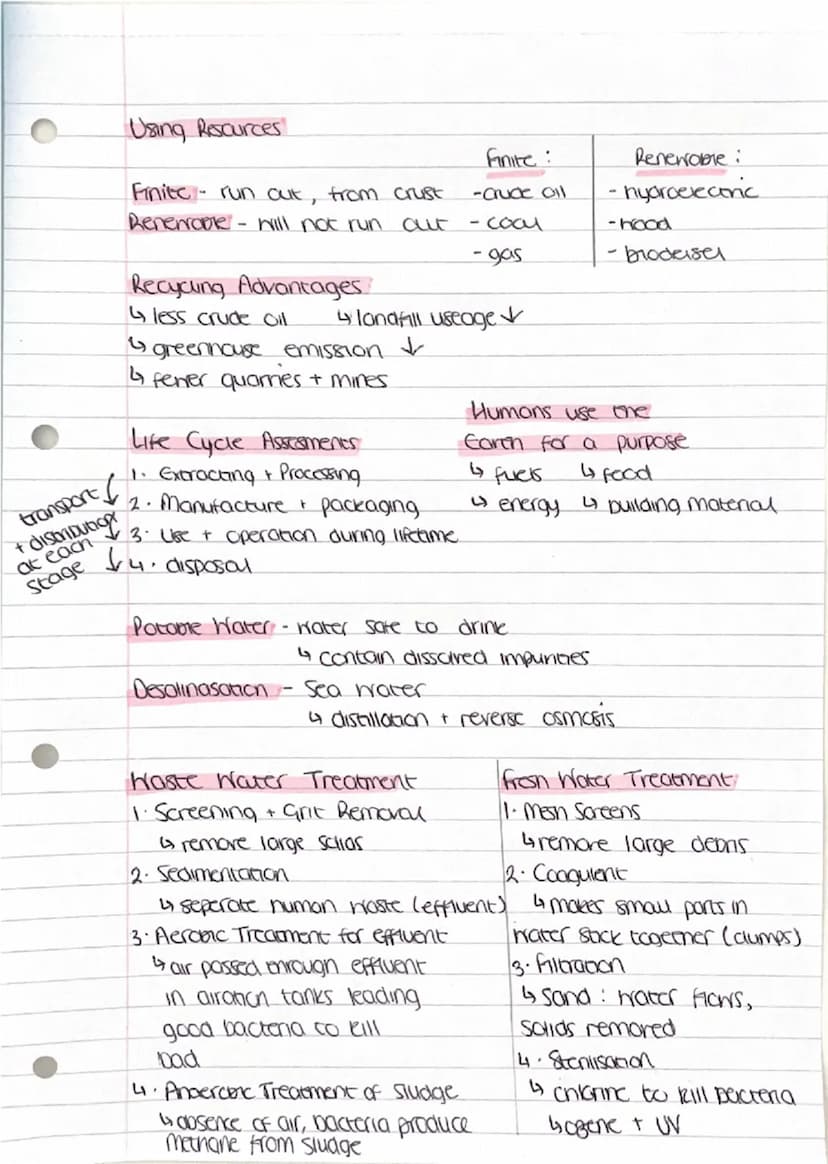 Using Resources
Finite :
Renewable :
Finite - run out, from crust
- crude oil
- hydroelectric
Renewable - will not run out
- coal
- wood
- gas
- biodeisel
Recycling Advantages:
↳ less crude oil ↳ landfill useage ↓
↳ greenhouse emission ↓
↳ fewer quarries + mines
Humans use the
Earth for a purpose
↳ fuels ↳ food
↳ energy ↳ building material
Life Cycle Assesments
1. Extracting + Processing
2. Manufacture + packaging
3. Use + operation during lifetime
4. disposal
transport
+ distribution
at each
stage
Potable Water - water safe to drink
↳ contain dissolved impurities
Desalinasation - Sea water
↳ distillation + reverse osmosis
Waste Water Treatment
1. Screening + Grit Removal
↳ remove large solids
2. Sedimentation
↳ seperate human waste (effluent)
3. Aerobic Treatment for effluent
↳ air passed through effluent
in airation tanks leading
good bacteria to kill
bad
4. Anaerobic Treatment of Sludge
↳ absence of air, bacteria produce
methane from sludge
Fresh Water Treatment:
1. Mesh Screens
↳ remove large debris
2. Coagulent
↳ makes small parts in
water stick together (clumps)
3. Filtration
↳ Sand : water flows,
solids removed
4. Sterilisation
↳ chlorine to kill bacteria
↳ ozene + UV